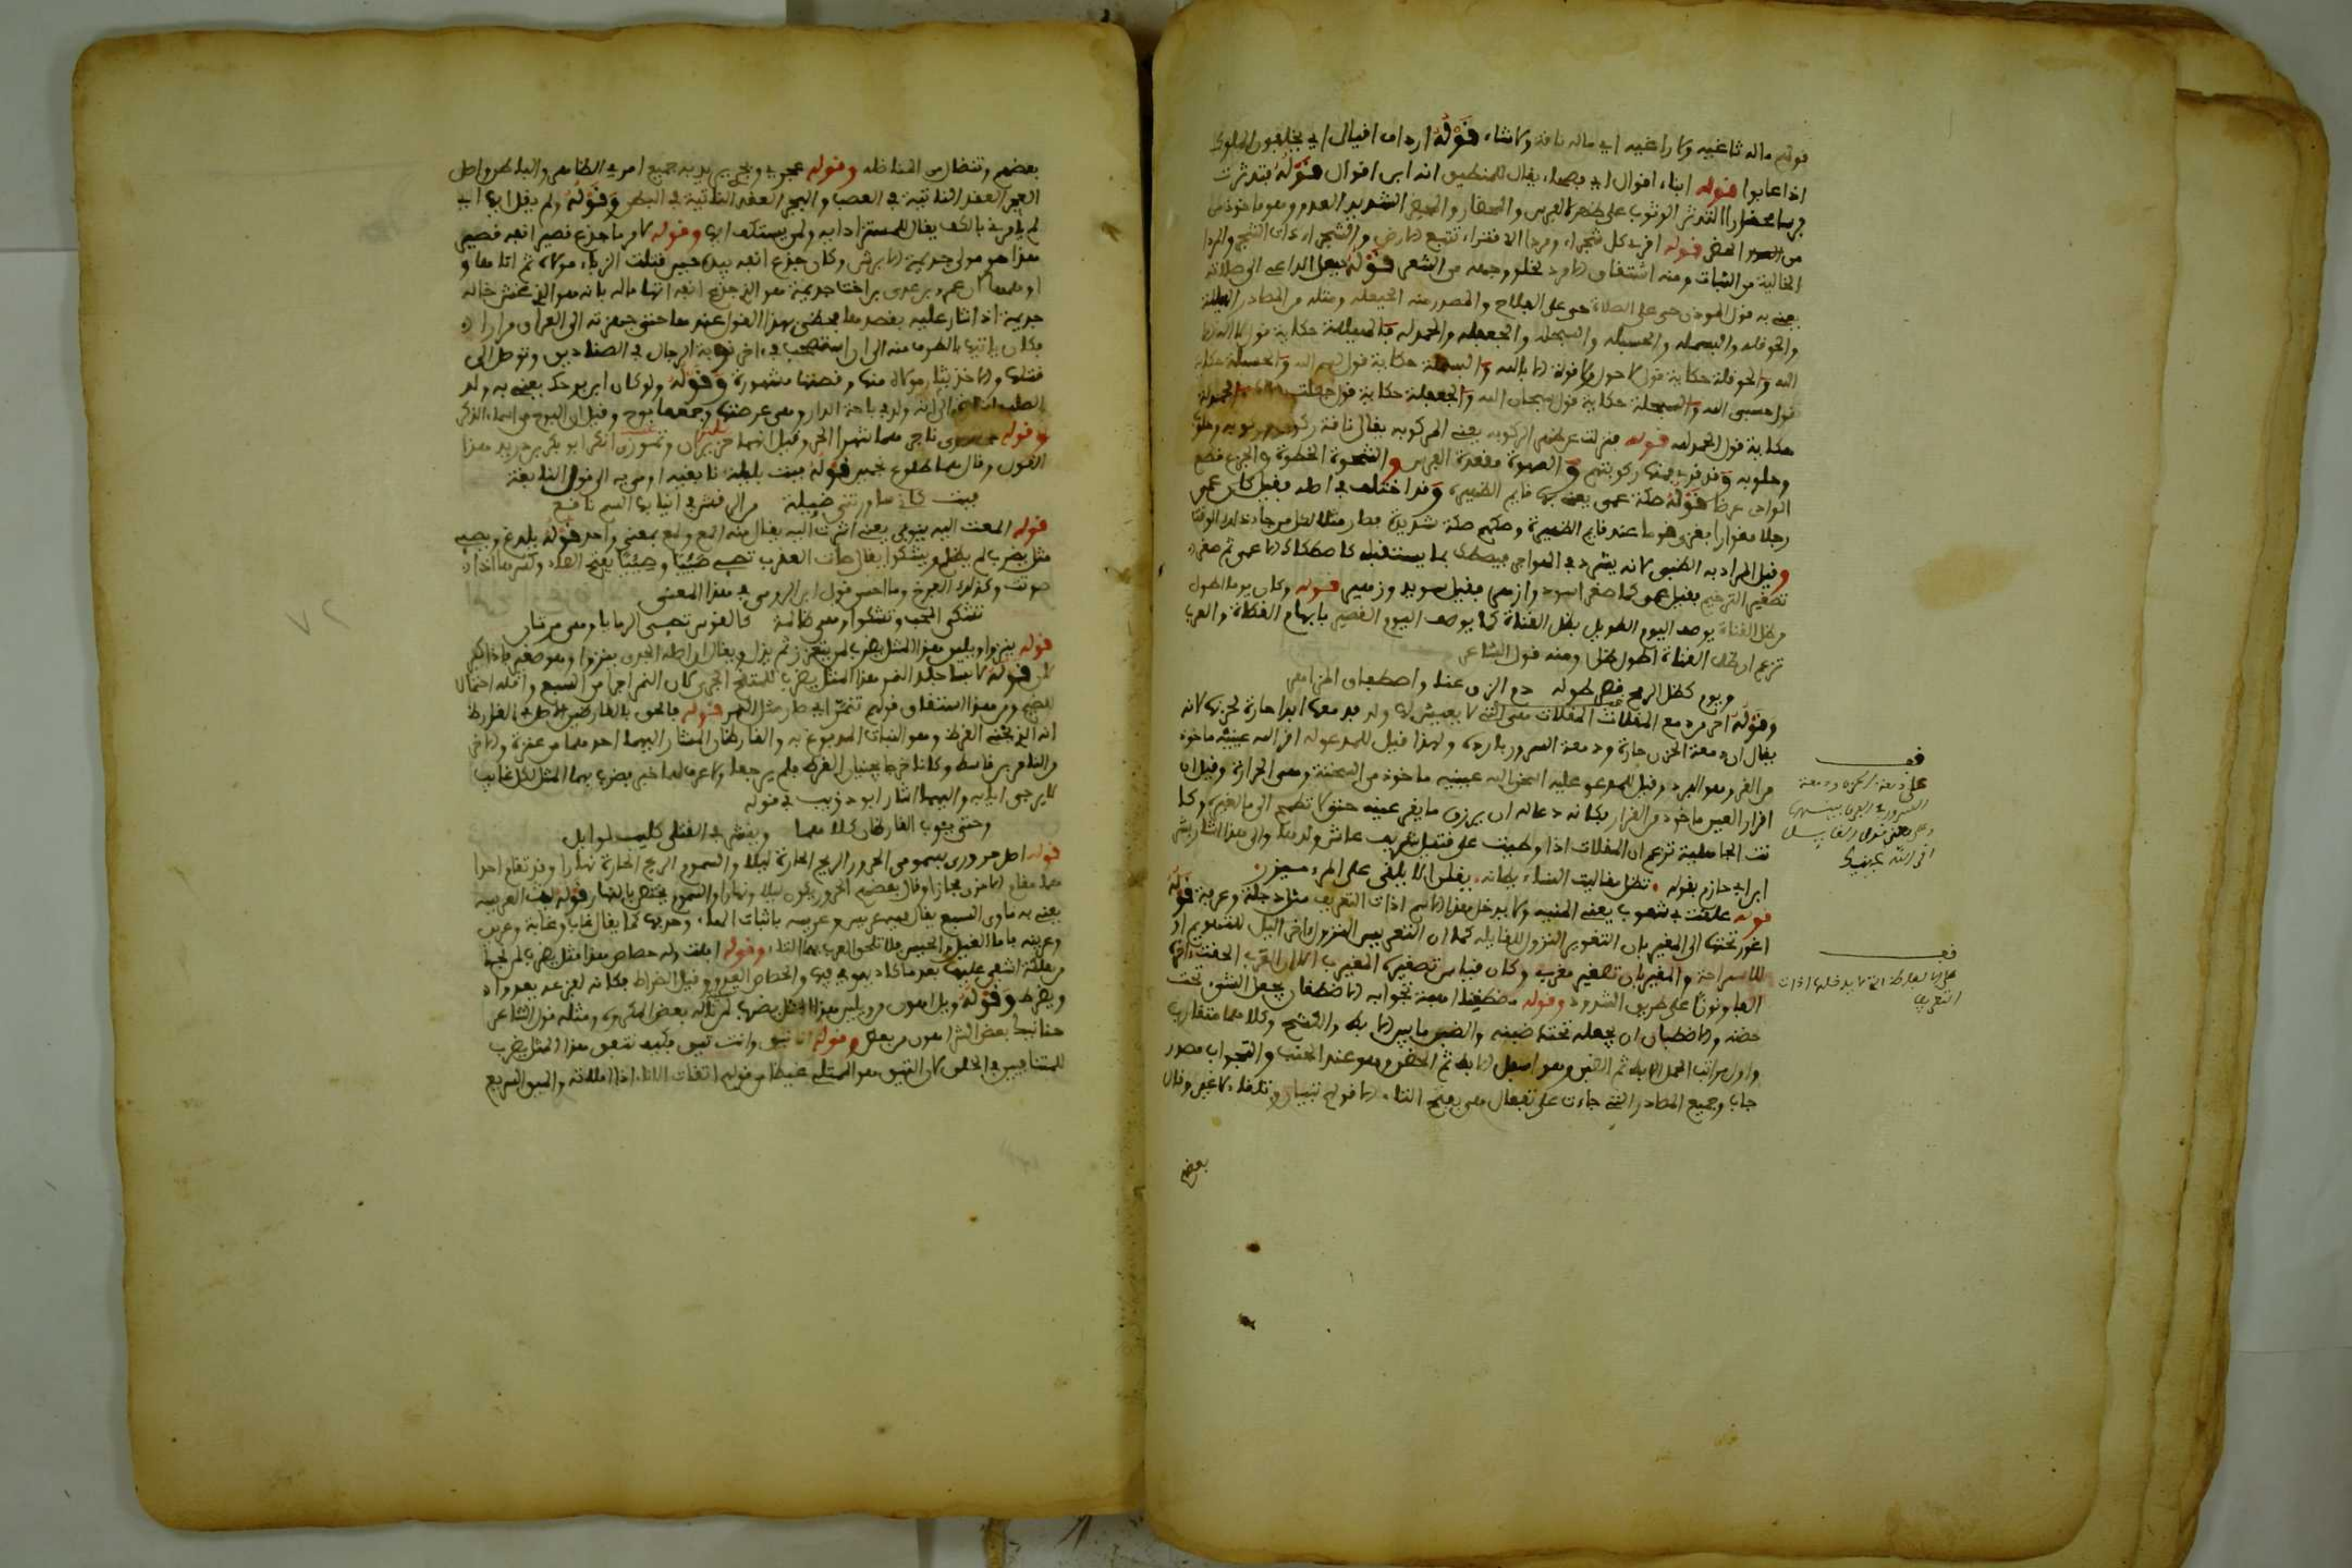 قولهم ماله ثاغية ولا راغية اي ماله ناقة ولا شاة قوله ارداف اقيال اي يخلفون الملوك
اذا غابوا قوله ابناء اقوال اي فصحاء يقال للمنطيق انه ابن اقوال قوله فتدثرت
فرسا محضارا التدثر الوثوب على ظهر الفرس والمحضار الشديد العدو وهو ماخوذ من
الحضر قوله اقري كل شجراء ومرداء الاقتراء تتبع الارض والشجراء ذات الشجر والمرداء
الخالية من النبات ومنه اشتقاق الامرد لخلو وجهه من الشعر قوله حيعل الداعي الى صلاته
يعني به قول الموذن حي على الصلاة حي على الفلاح والمصدر منه الحيعلة ومثله من المصادر
والحوقلة والبسملة والحسبلة والسبحلة والجعفلة والحمدلة فالهيللة حكاية قول لا اله الا
الله والحوقلة حكاية قول لا حول ولا قوة الا بالله والبسملة حكاية قول بسم الله والحسبلة حكاية
قول حسبي الله والسبحلة حكاية قول سبحان الله والجعفلة حكاية قول جعلت والحمدلة
حكاية قول الحمد لله قوله فنزلت عن ظهر الركوبة يعني المركوبة يقال ناقة ركوب وركوبة وحلوب
وحلوبة وقد قرئ فمنها ركوبتهم والصهوة مقعدة الفرس والشحوة الخطوة والجزع قطع
الوادي عرضا قوله صكة عمي يعني بها قايم الظهيرة وقد اختلف في اصله فقيل كان عمي
رجلا مغوارا فغزى قوما عند قايم الظهيرة وصكهم صكة شديدة فصار مثلا لكل من جاء في ذلك الوقت
وقيل المراد به الظبي لانه يشرد في الهواجر فيصطك بما يستقبله كاصطكاك الاعمى ثم صغر
تصغير الترخيم فقيل عمي كما صغر اسود وازهر فقيل سويد وزهير قوله وكان يوما اطول
من ظل القناة يوصف اليوم الطويل بظل القناة كما يوصف اليوم القصير بابهام القطاة والعرب
تزعم ان ظل القناة اطول ظل ومنه قول الشاعر
ويوم كظل الرمح قصر طوله دم الزق عنا واصطفاق المزاهر
وقوله احر من دمع المقلات المقلات هي التي لا يعيش لها ولد فدمعها ابدا حارة لحزنها لانه
يقال ان دمعة الحزن حارة ودمعة السرور باردة ولهذا قيل للمدعو له اقر الله عينيه ماخوذ
من القر وهو البرد وقيل للمدعو عليه اسخن الله عينيه ماخوذ من السخنة وهي الحرارة وقيل ان
اقرار العين ماخوذ من القرار فكانه دعا له ان يرزق ما يقر عينه حتى لا تطمح الى ما لغيره وكا
نت الجاهلية تزعم ان المقلات اذا وطئت على قتيل شريف عاش ولدها والى هذا اشار بشر
ابن ابي حازم بقوله تظل مقاليت النساء يطانه يقلن الا يلقى على المرء مئزر
قوله علقت بي شعوب يعني المنية ولا يدخل هذا الاسم اداة التعريف مثل دجلة وعرفة قوله
اغور تحتها الى المغيربان التغوير النزول للقايلة كما ان التعريس النزول اخر الليل للتهويم او
للاستراحة والمغيربان تصغير مغرب وكان قياس تصغيره المغيرب الا ان العرب الحقت اخره
الفا ونونا على طريق الشذوذ وقوله مضطغنا اهبة تجوابه الاضطغان يجعل الشيء تحت
حضنه والاضطبان ان يجعله تحت ضبنه والضبن ما بين الابط والكشح وكلاهما متقارب
واول مراتب الحمل الابط ثم الضبن وهو اسفل الابط ثم الحضن وهو عند الجنب والتجواب مصدر
جاب وجميع المصادر التي جاءت على تفعال هي بفتح التاء الا قولهم تبيان وتلقاء لا غير وقال
بعضهم
قف
على دمعة الحزن ودمعة
السرور والفرق بينهما
وعلى معنى قول القايل
اقر الله عينيك
قف
على الالفاظ التي لا يدخلها اداة
التعريف
بعضهم وتنضال من المناضلة وقوله عجري وبجري يريد به جميع امري الظاهر والباطن واصل
العجر العقد الناتية في العصب والبجر العقد الناتية في البطن وقوله ولم يقل ايها اي
لم يامر بالكف يقال للمستزاد ايه ولمن يستكف ايها وقوله لامر ما جدع قصير انفه قصير
هذا هو مولى جذيمة الابرش وكان جدع انفه بيده حين قتلت الزباء مولاه ثم اتاها و
اوهمها ان عمرو بن عدي ابن اخت جذيمة هو الذي جدع انفه اتهاما له بانه هو الذي غش خاله
جذيمة اذ اشار عليه بقصدها فحظي بهذا القول عندها حتى جهزته الى العراق مرارا
فكان ياتيها بالطرف منه الى ان استصحب في اخر نوبة الرجال في الصناديق وتوصل الى
قتلها والاخذ بثار مولاه منها وقصتها مشهورة وقوله ولو كان ابن بوحك يعني به ولد
الصلب الى انه ولد في باحة الدار وهي عرصتها وجمعها بوح وقيل ان البوح من اسماء الذكر
وقوله ناجر هما شهرا الحر وقيل انهما حزيران وتموز وانكر ابو بكر بن دريد هذا
القول وقال هما طلوع نجمين قوله فبت بليلة نابغية اومى به الى قول النابغة
فبت كاني ساورتني ضئيلة من الرقش في انيابها السم ناقع
قوله المعت اليه بثوبي يعني اشرت اليه يقال منه المع ولمع بمعنى واحد قوله يلدغ ويصيء
مثل يضرب لمن يظلم ويشكوا يقال صات العقرب تصيء صئيا وصئيا بفتح الصاد وكسرها اذا
صوتت وكذلك الفرخ وما احسن قول ابن الرومي في هذا المعنى
تشكي المحب وتشكوا وهي ظالمة كالقوس تصمي الرمايا وهي مرنان
قوله ينزو ويلين هذا المثل يضرب لمن يتعزز ثم يذل ويقال ان اصله الجدي ينزوا وهو صغير فاذا كبر
لان قوله لابسا جلد النمر هذا المثل يضرب للمتوقح الجري لان النمر اجرا من السبع واقله احتمالا
للضيم ومن هذا اشتقاق قولهم تنمر اي صار مثل النمر قوله فالحق بالقارظين الاصل في القارظ
انه الذي يجني القرظ وهو النبات المدبوغ به والقارظان المشار اليهما احدهما من عنزة والاخر
من النمر بن قاسط وكانا خرجا يجنيان القرظ فلم يرجعا ولا عرف لهما خبر فضرب بهما المثل لكل غايب
لا يرجى ايابه واليهما اشار ابو ذؤيب في قوله
وحتى يئوب القارظان كلاهما وينشر في القتلى كليب لوايل
قوله اصل حروري بسمومي الحرور الريح الحارة ليلا والسموم الريح الحارة نهارا وقد تقام احدا
هما مقام الاخرى مجازا وقال بعضهم الحرور يكون ليلا ونهارا والسموم يختص بالنهار قوله ليث العريسة
يعني به ماوى السبع يقال فيه عريس وعريسة باثبات الهاء وحذفها كما يقال غاب وغابة وعرين
وعرينة فاما الغيل والخيس فلا تلحق العرب بهما الهاء وقوله افلت وله حصاص هذا مثل يضرب لمن نجا
من هلكة اشفى عليها بعد ما كاد يهوي فيها والحصاص العدو وقيل الضراط فكانه لفزعه يعدوا
ويضرط وقوله ويل اهون من ويلين هذا المثل يضرب لمن ناله بعض المكروه ومثله قول الشاعر
حنانيك بعض الشر اهون من بعض وقوله انا تيق وانت مئق فكيف نتفق هذا المثل يضرب
للمتنافيين في الخلق لان التيق هو الممتلئ غيظا من قولهم اتاقت الاناء اذا املاته والميق السريع